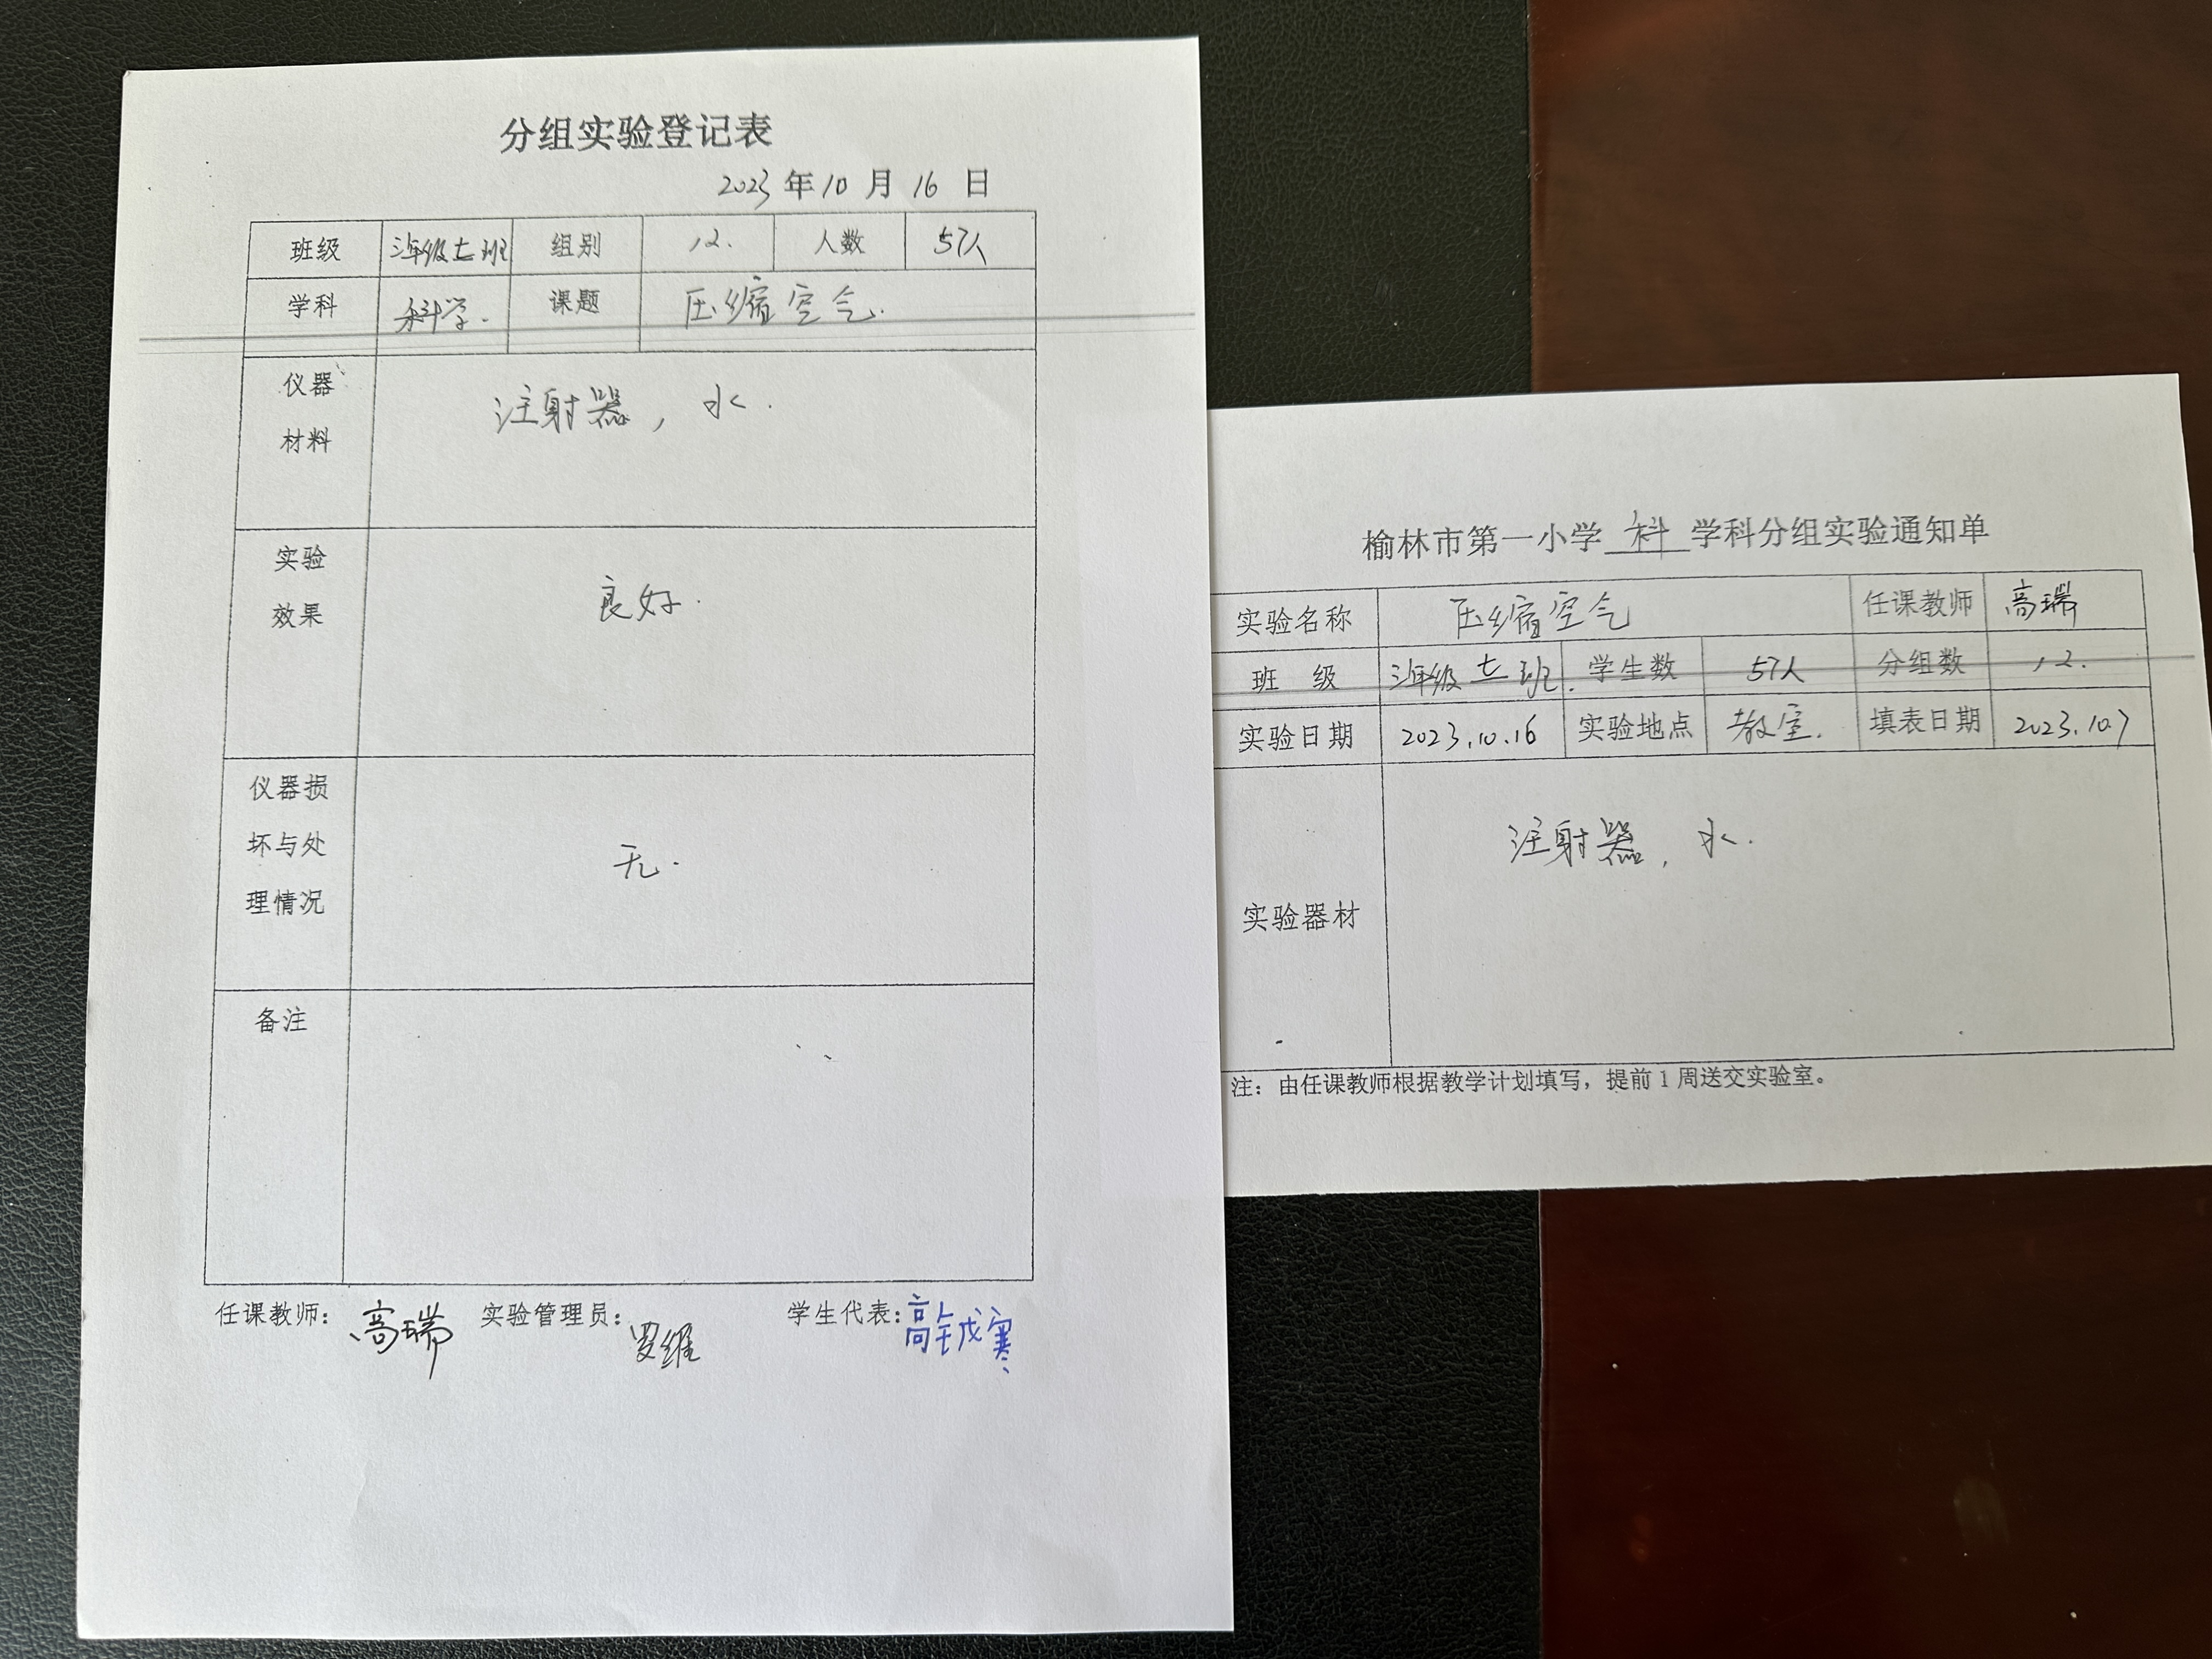 分组实验登记表
2023 年 10 月 16 日
班级 三年级七班 组别 12. 人数 57人
学科 科学. 课题 压缩空气.
仪器 注射器, 水.
材料
实验
效果 良好.
仪器损
坏与处 无.
理情况
备注
任课教师: 高瑞 实验管理员: 罗维 学生代表:
榆林市第一小学 科 学科分组实验通知单
实验名称 压缩空气 任课教师 高瑞
班 级 三年级七班. 学生数 57人 分组数 12.
实验日期 2023.10.16 实验地点 教室. 填表日期 2023.10.7
实验器材 注射器, 水.
注：由任课教师根据教学计划填写，提前1周送交实验室。